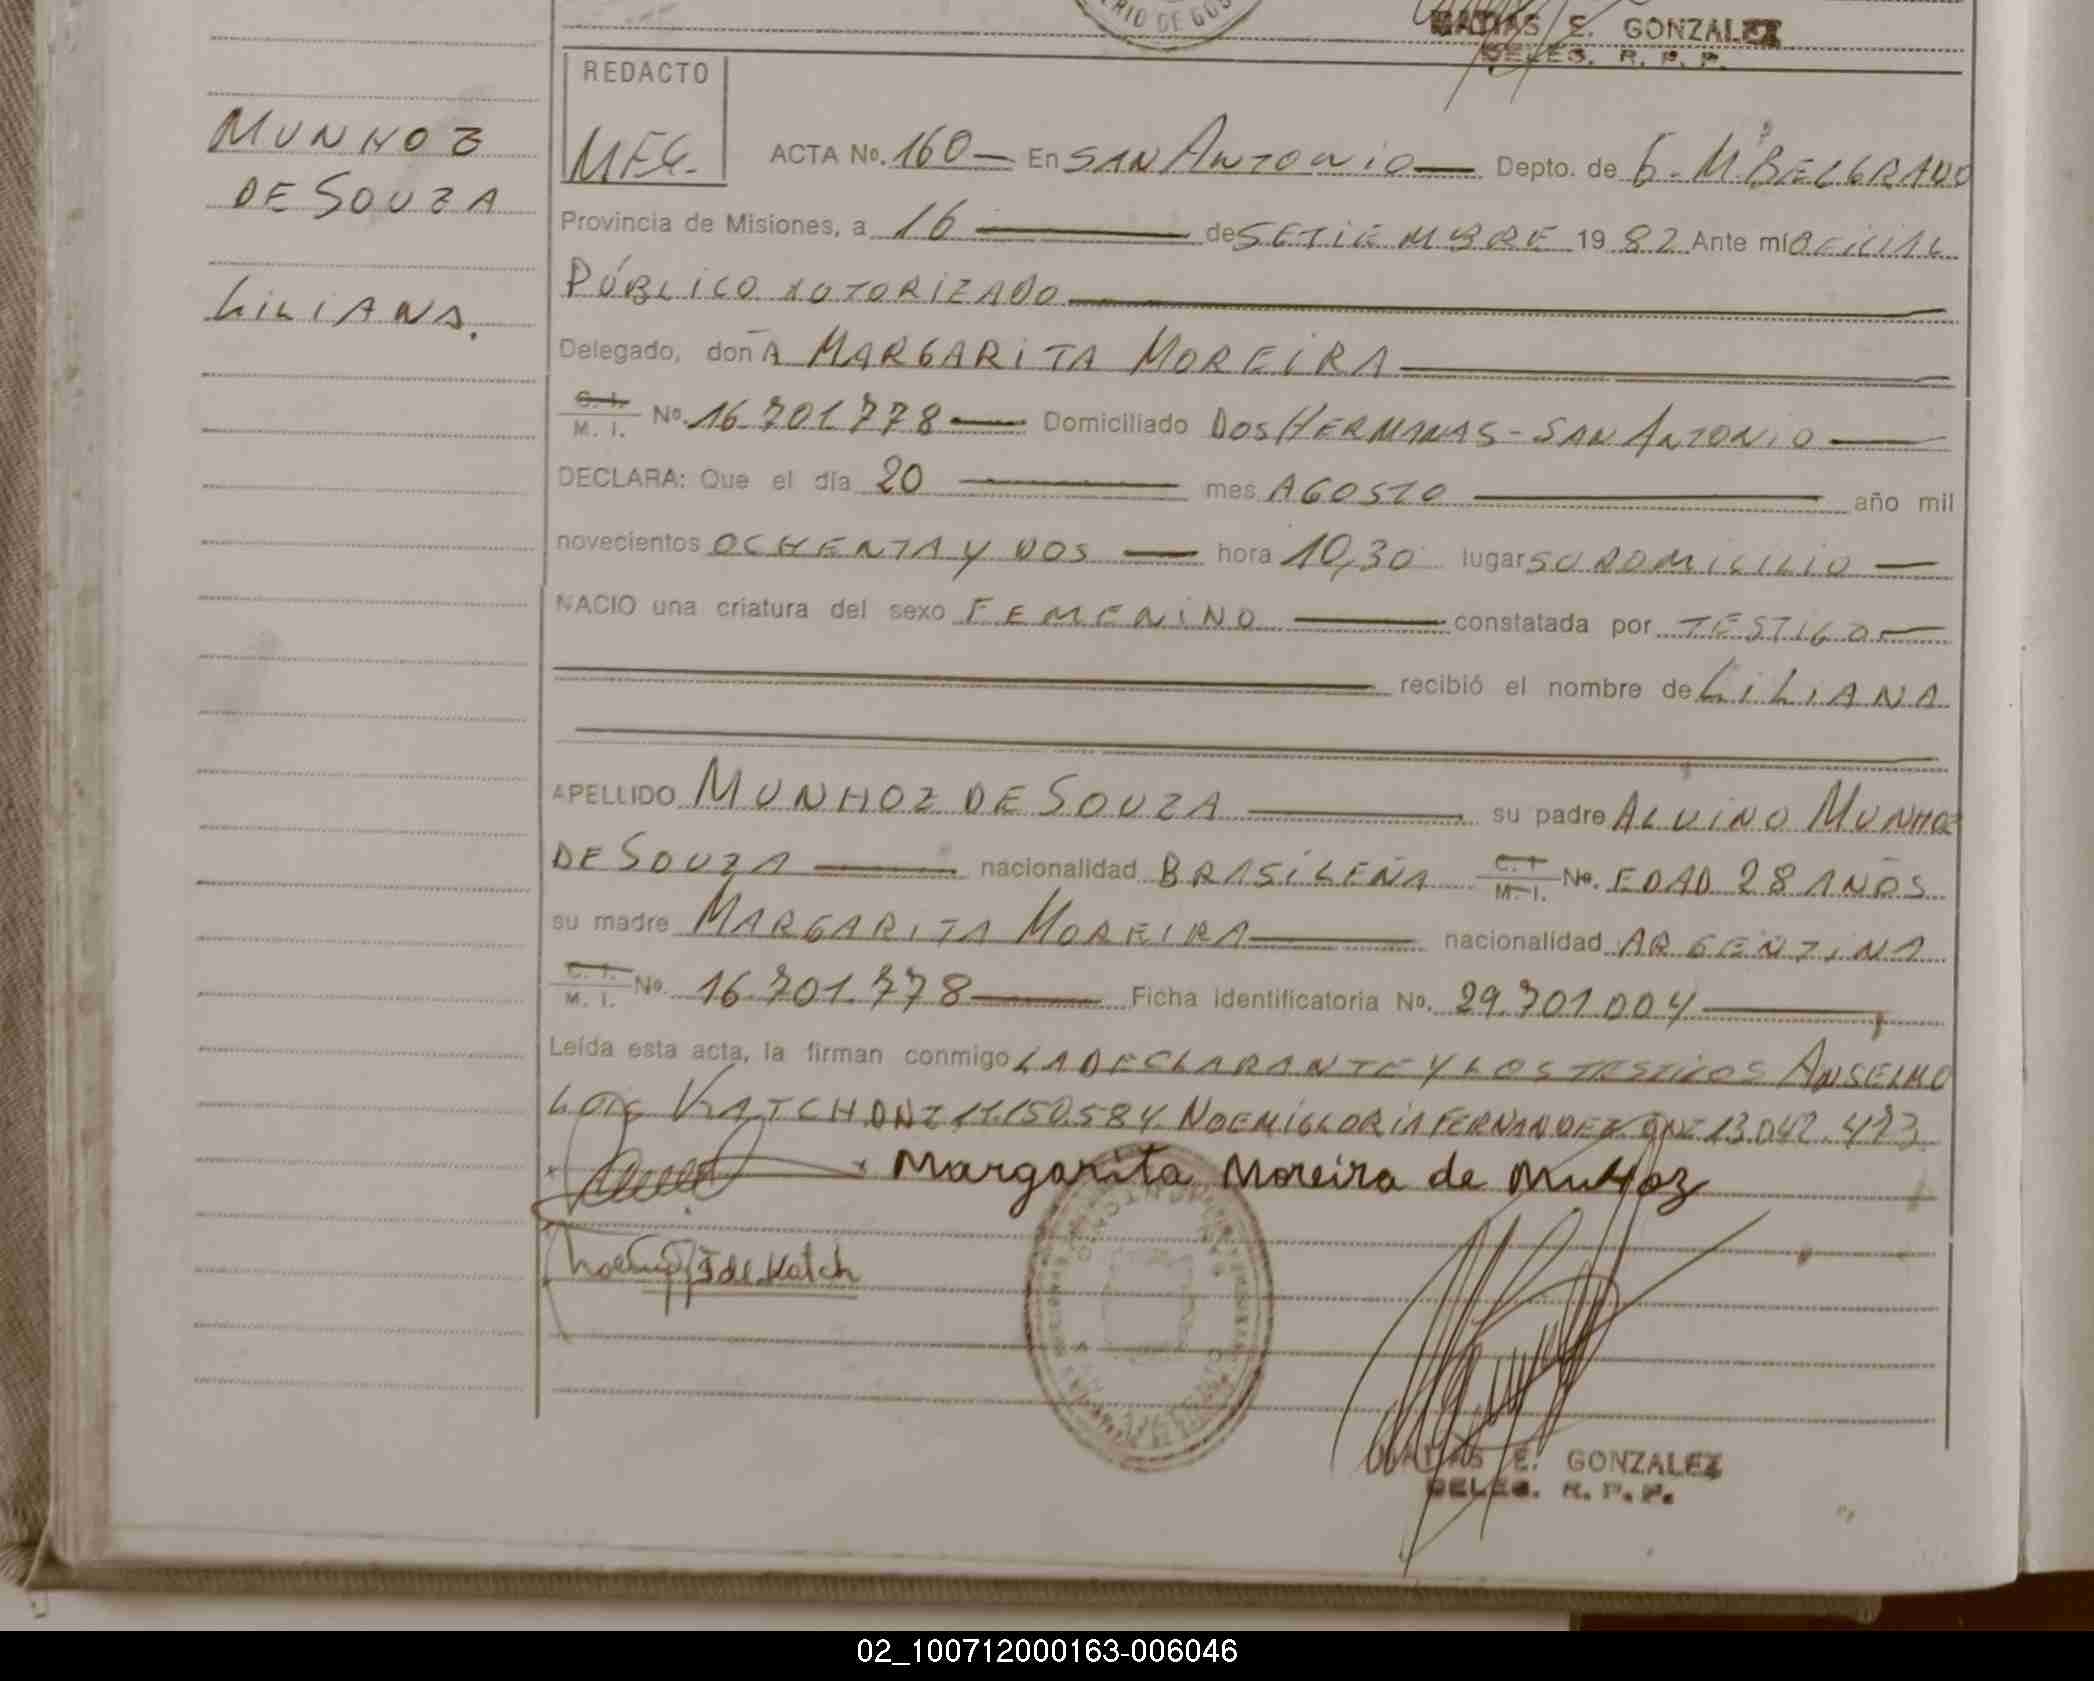 MATIAS E. GONZALEZ
DELEG. R. P. P.
MUNHOZ
DE SOUZA
LILIANA.
REDACTO
MEG.
ACTA No. 160 En SAN ANTONIO Depto. de G. M. BELGRANO
Provincia de Misiones, a 16 de SETIEMBRE 19 82 Ante mi OFICIAL
PÚBLICO AUTORIZADO
Delegado, doñA MARGARITA MOREIRA
C. I. / M. I. No. 16.701.778 Domiciliado DOS HERMANAS - SAN ANTONIO
DECLARA: Que el día 20 mes AGOSTO año mil
novecientos OCHENTA Y DOS hora 10,30 lugar SU DOMICILIO
NACIO una criatura del sexo FEMENINO constatada por TESTIGO
recibió el nombre de LILIANA
APELLIDO MUNHOZ DE SOUZA su padre ALVINO MUNHOZ
DE SOUZA nacionalidad BRASILEÑA C. I. / M. I. No. EDAD 28 AÑOS
su madre MARGARITA MOREIRA nacionalidad ARGENTINA
C. I. / M. I. No. 16.701.778 Ficha identificatoria No. 29.701.004
Leída esta acta, la firman conmigo LA DECLARANTE Y LOS TESTIGOS ANSELMO
LUIS KATCH DNI 11.150.584 NOEMI GLORIA FERNANDEZ DNI 13.042.473
Margarita Moreira de Muñoz
F de Katch
MATIAS E. GONZALEZ
DELEG. R. P. P.
02_100712000163-006046